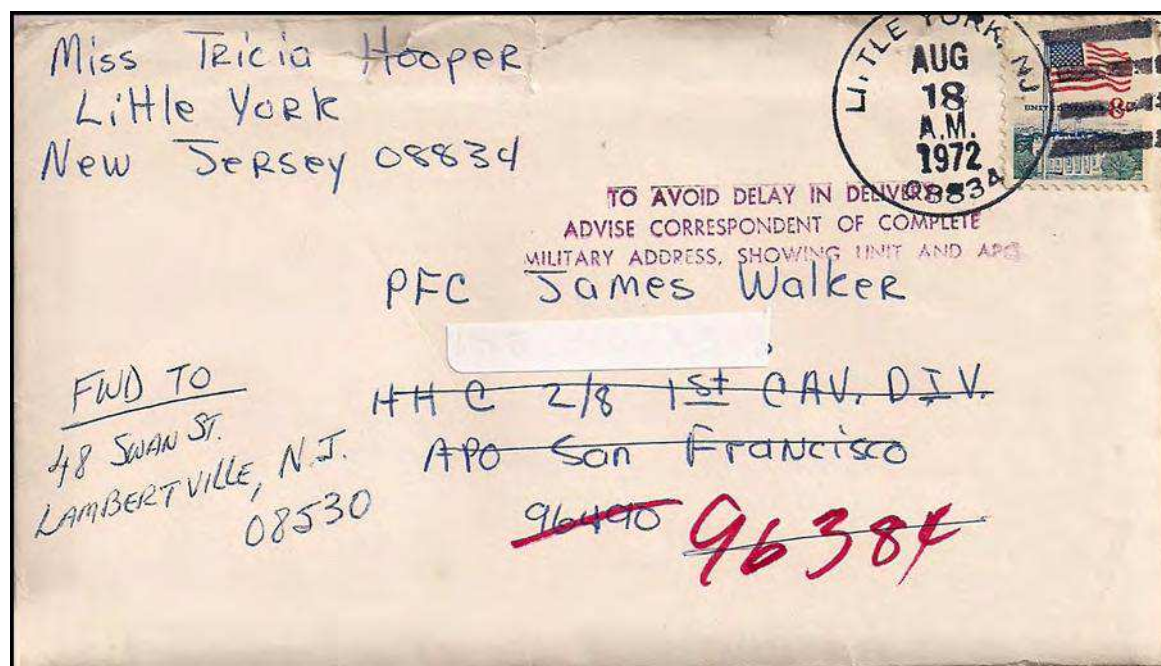 Miss Tricia Hooper
Little York
New Jersey 08834
LITTLE YORK, NJ
AUG
18
A.M.
1972
08834
8c
TO AVOID DELAY IN DELIVERY
ADVISE CORRESPONDENT OF COMPLETE
MILITARY ADDRESS, SHOWING UNIT AND APO
PFC James Walker
HHC 2/8 1st CAV. DIV.
APO San Francisco
96490 96384
FWD TO
48 SWAN ST.
LAMBERTVILLE, N.J.
08530